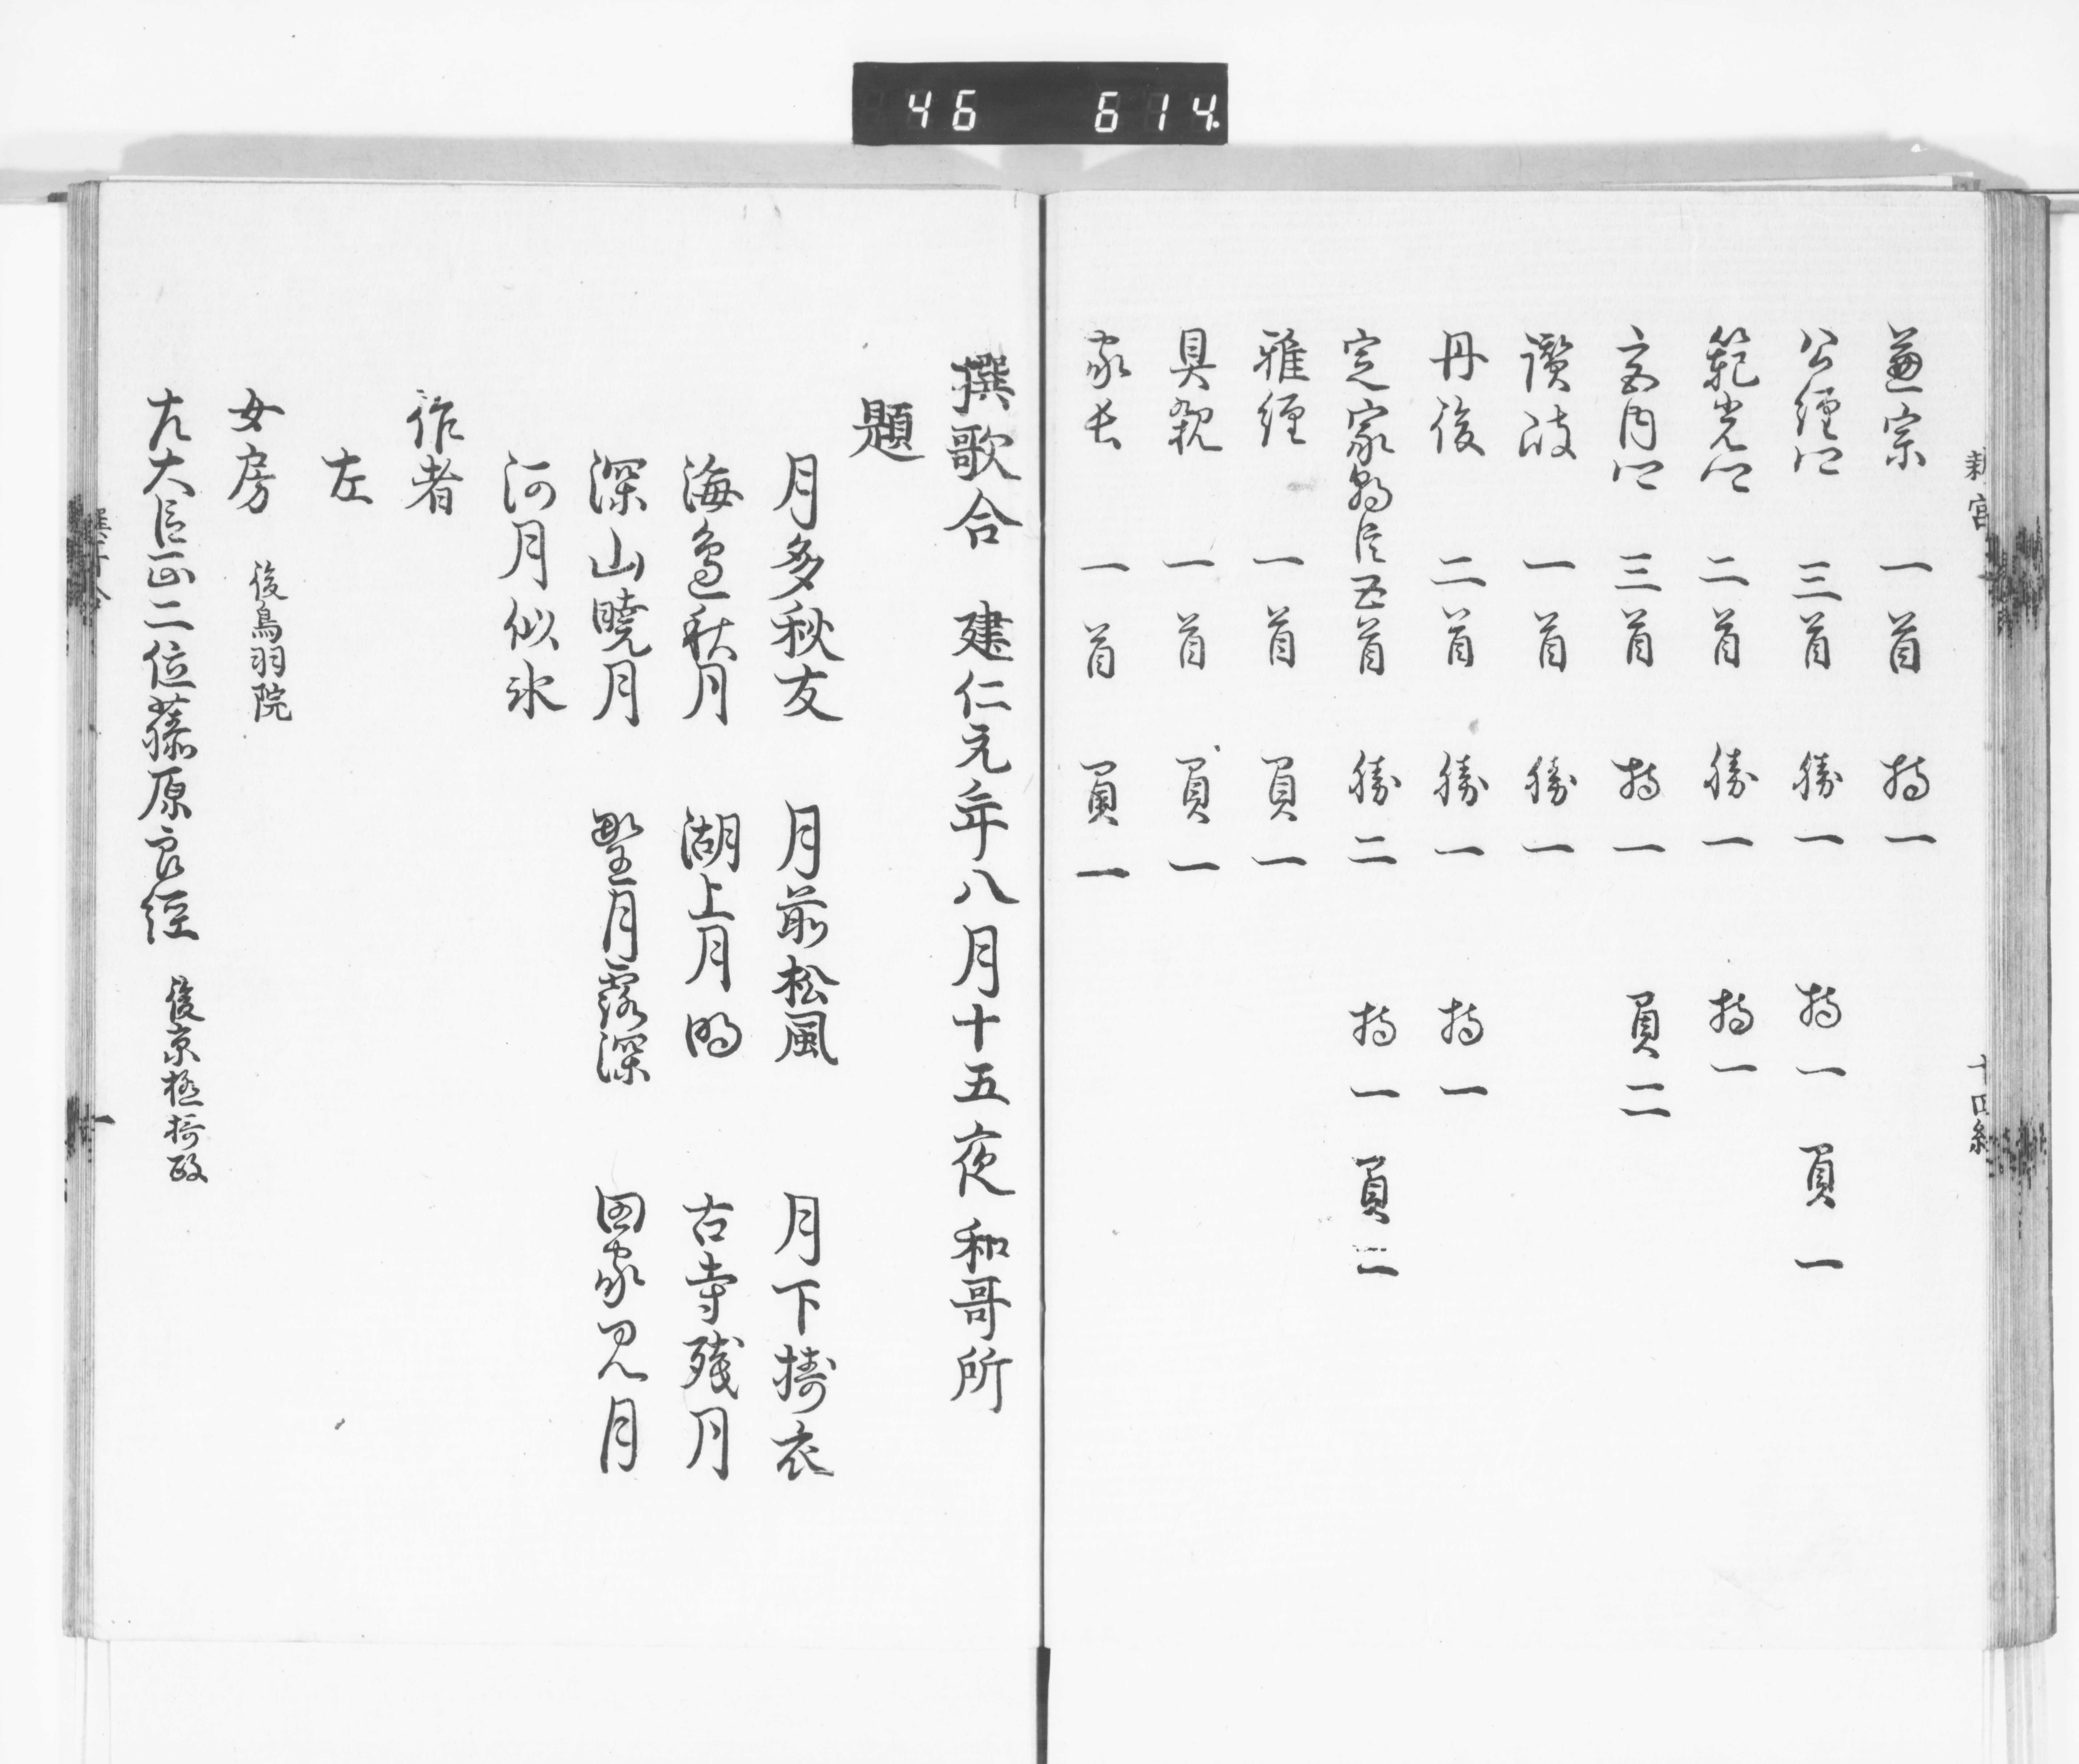 46 614
新宮 十四終
兼宗 一首 持一
公経卿 三首 勝一 持一 負一
範光卿 二首 勝一 持一
宮内卿 三首 持一 負二
讃岐 一首 勝一
丹後 二首 勝一 持一
定家朝臣 五首 勝二 持一 負二
雅経 一首 負一
具親 一首 負一
家長 一首 負一
撰歌合 建仁元年八月十五夜 和哥所
題
月多秋友 月前松風 月下擣衣
海邊秋月 湖上月明 古寺残月
深山暁月 野月露深 田家見月
河月似氷
作者
左
女房 後鳥羽院
左大臣正二位藤原良経 後京極摂政
撰哥合 一